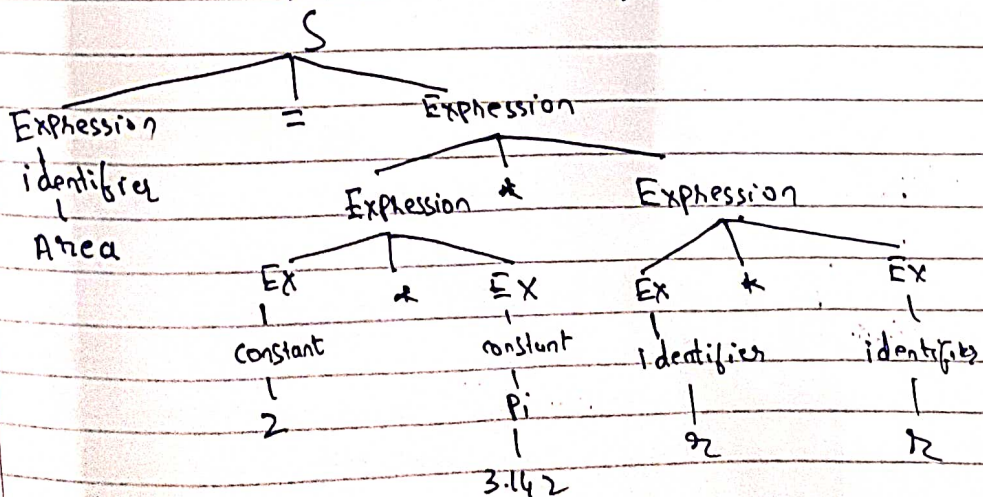 S
Expression = Expression
identifier
Area
Expression * Expression
Ex * Ex Ex * Ex
constant constant identifier identifier
2 Pi r r
3.142